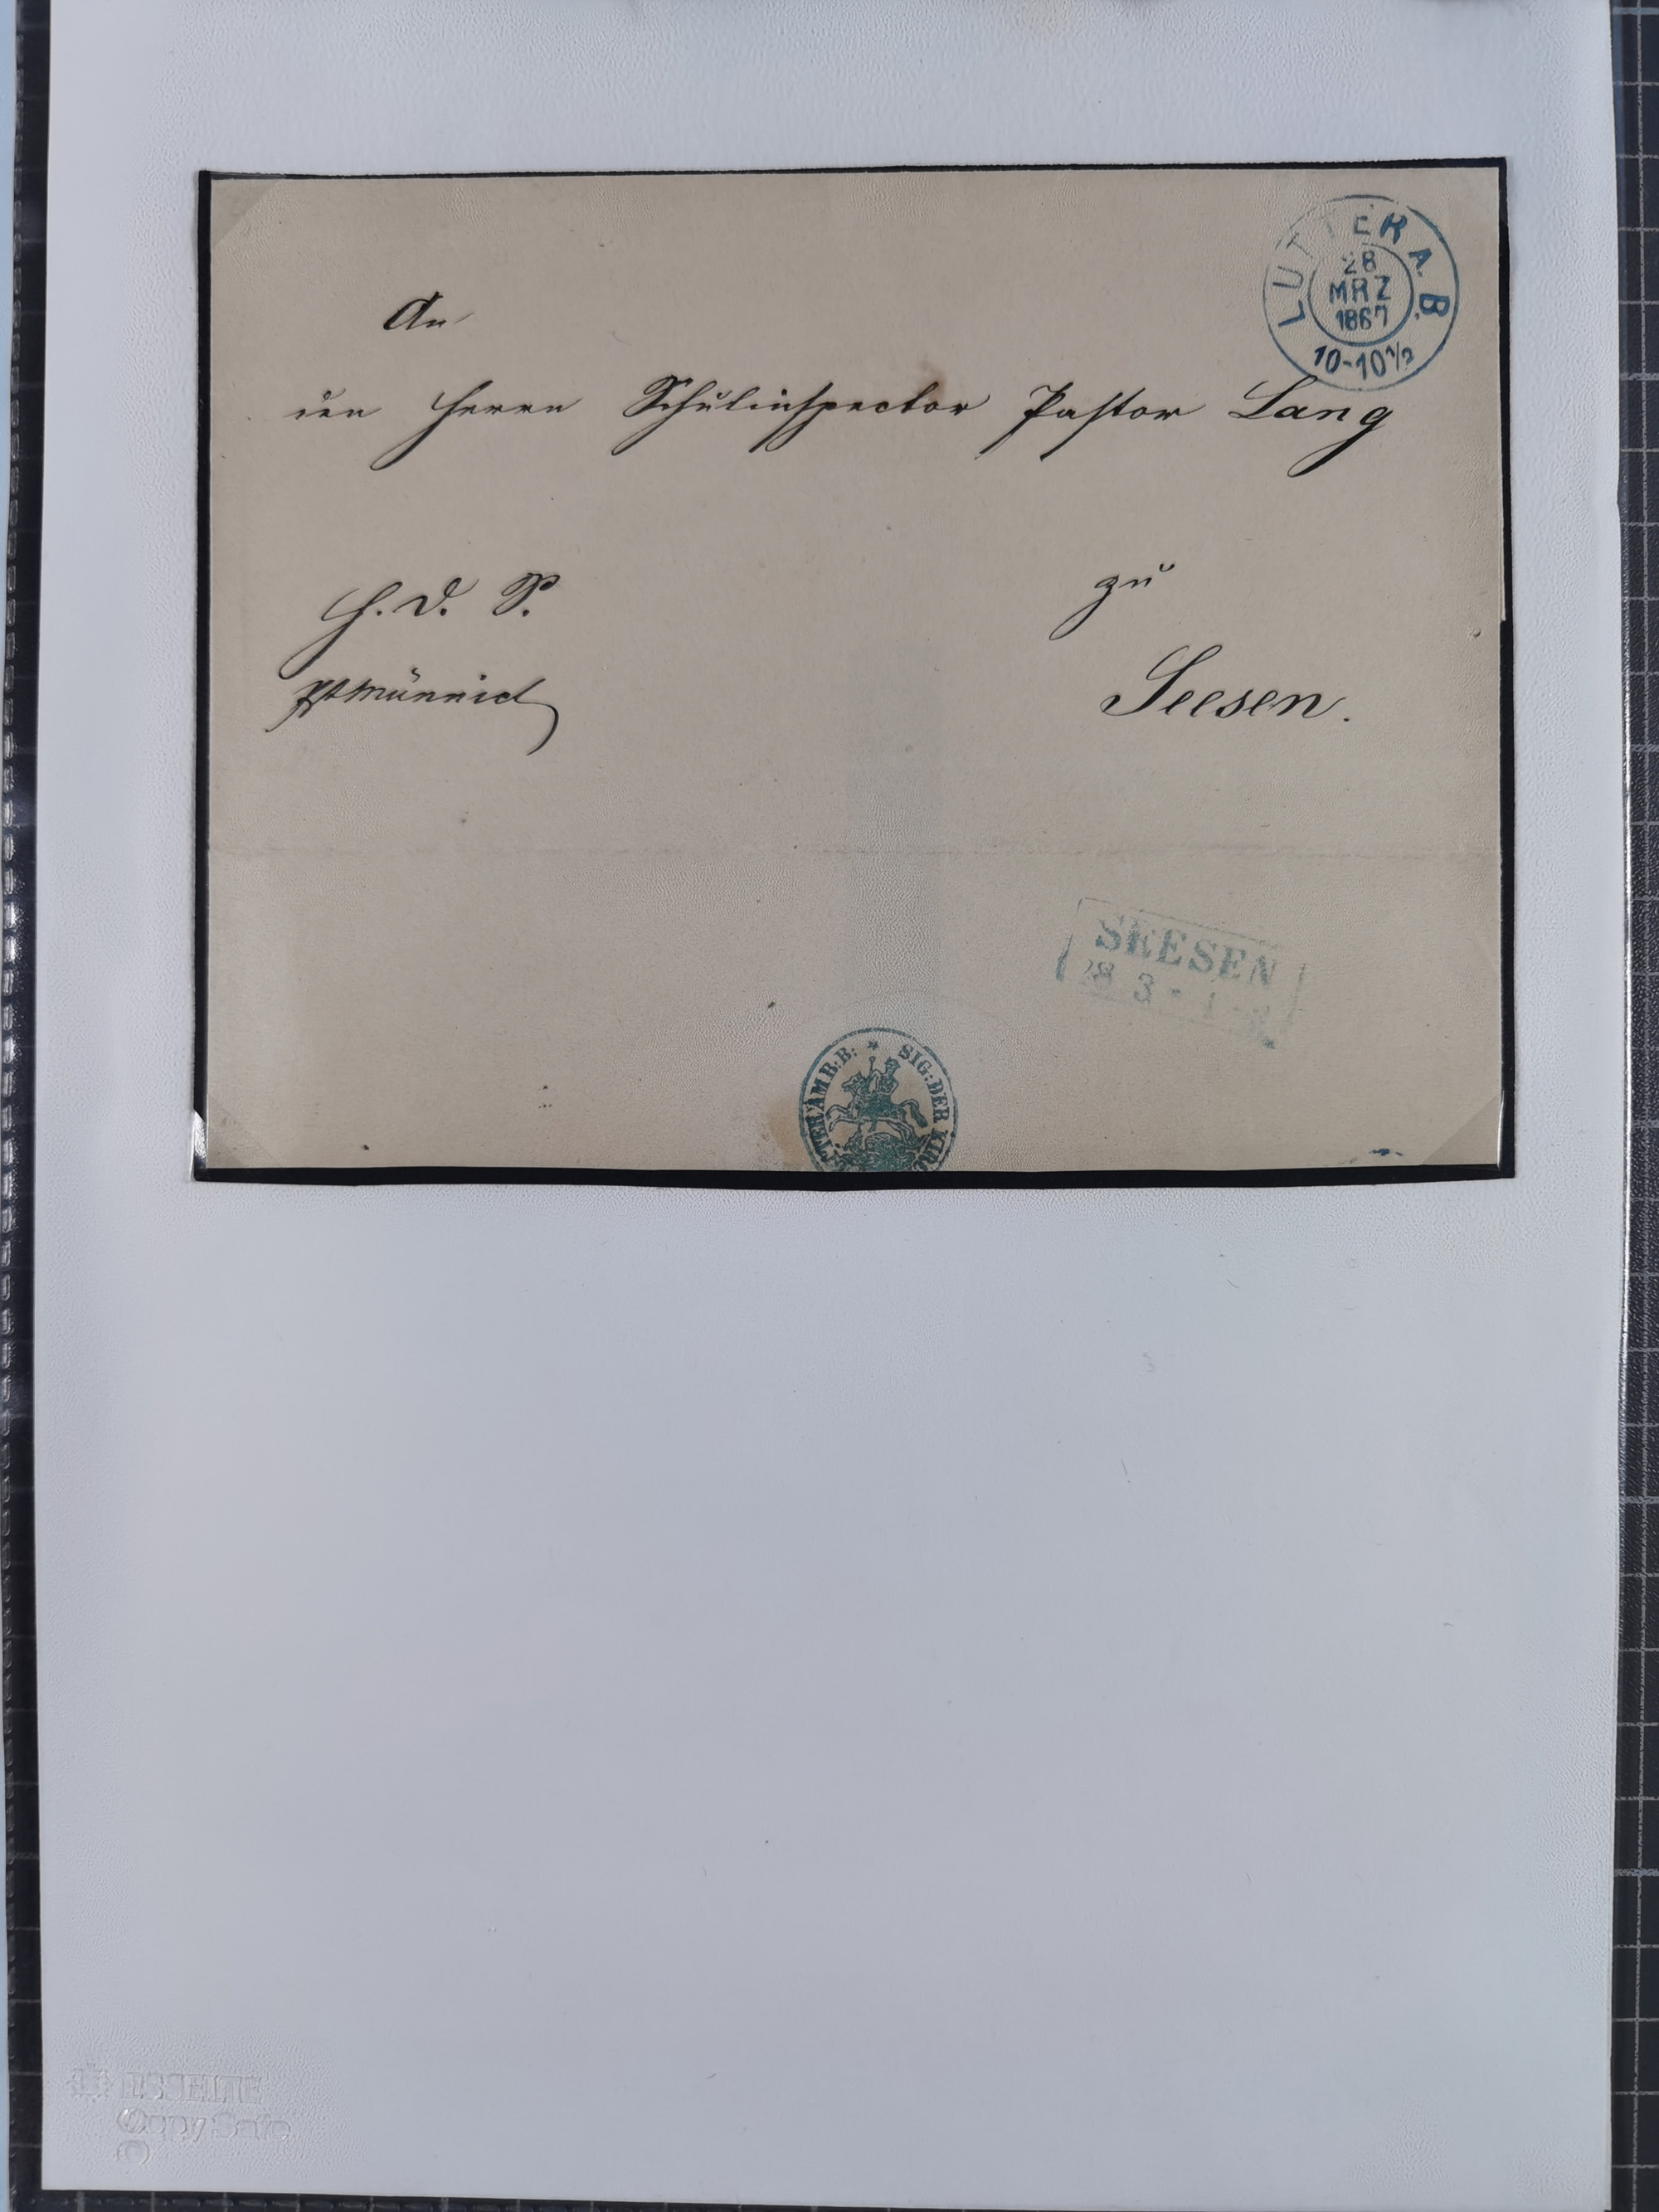 LUTTER A. B.
28
MRZ
1867
10-10½
An
den Herrn Schulinspector Pastor Lang
H. D. S.
zu
PMünnich
Seesen.
SEESEN
28 3
TER AM B:B: * SIG: DER KIRC
ESSELTE
Copy Safe